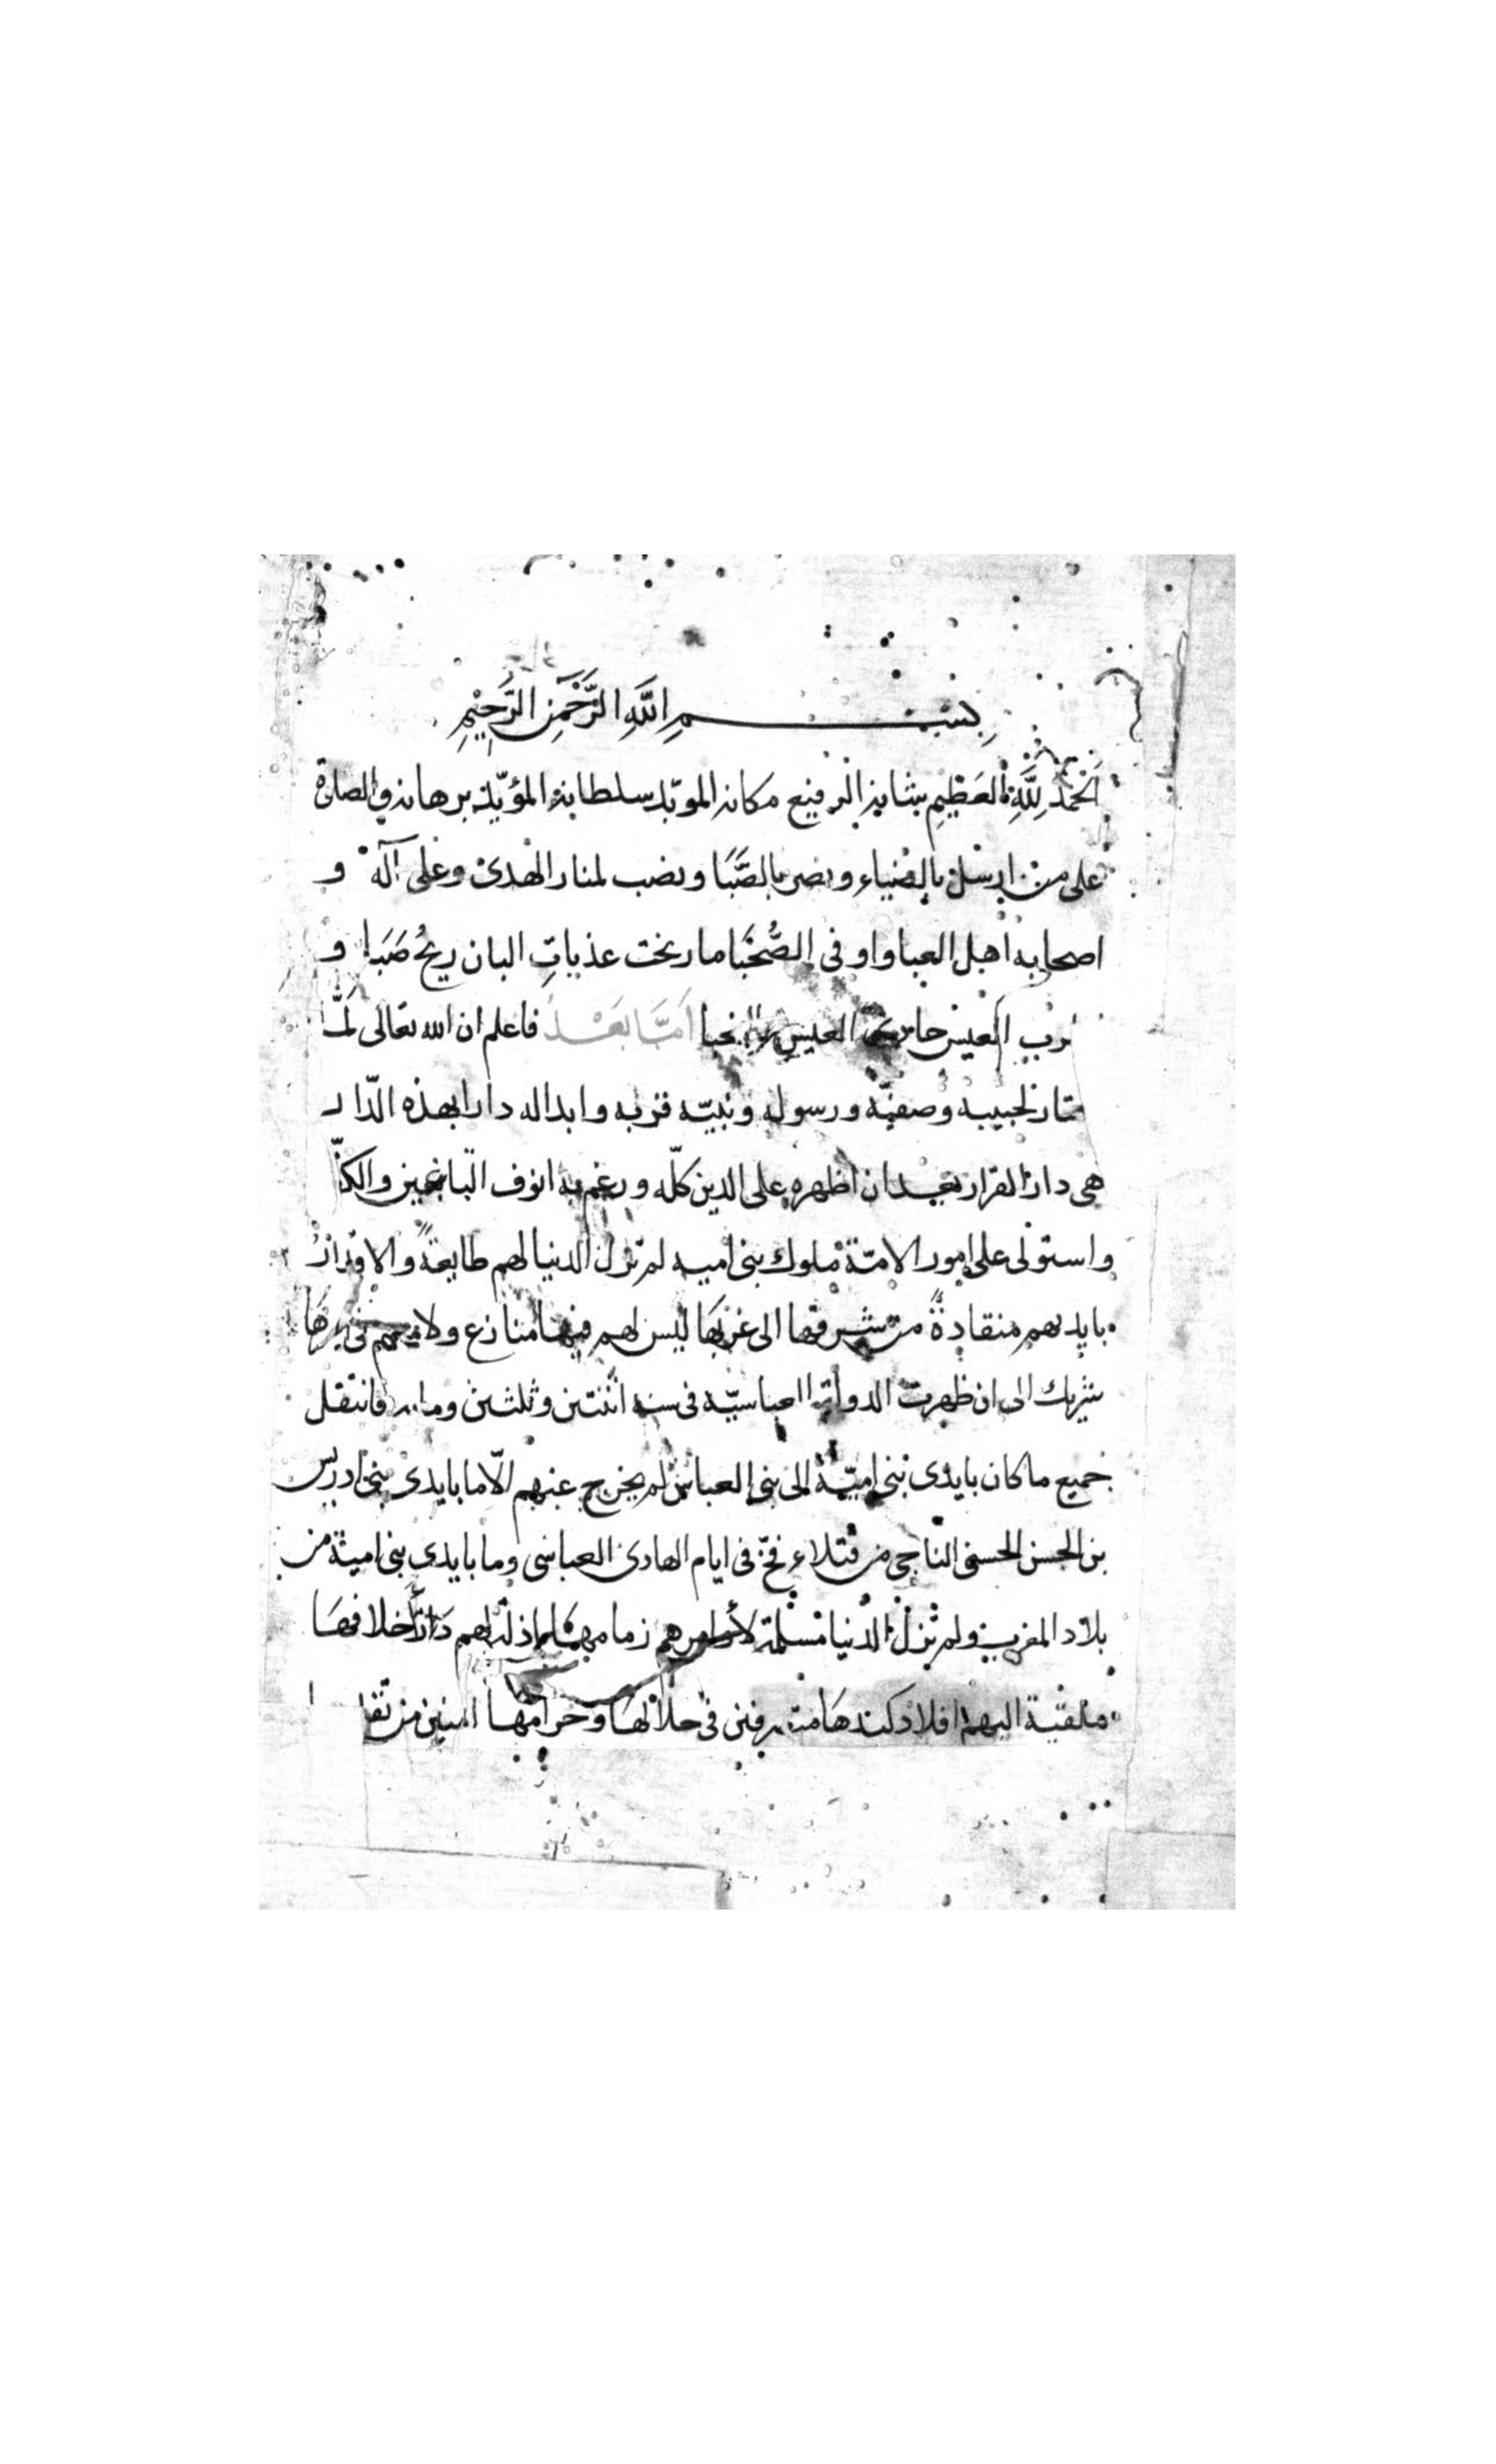 بِسْمِ اللَّهِ الرَّحْمٰنِ الرَّحِيْمِ
الحَمْدُ لِلَّهِ العَظِيْمِ شانه الرفيع مكانه الموبد سلطانه المؤيد برهانه والصلوة
على من ارسل بالضياء ونصر بالصَّبَا ونصب لمنار الهدى وعلى آله و
اصحابه اهل العبا واوفى الصُّحَبَا ما رنحت عذباتِ البان ريحُ صَبَا و
العيس العيس أمَّا بَعْدُ فاعلم ان الله تعالى لمَّا
لحبيبه وصفيّه ورسوله ونبيّه قربه وابداله دارا بهذه الدّار
هى دار القرار بعد ان اظهره على الدين كلّه ورغم به انوف
واستولى على امور الامّة ملوك بنى اميه لم تزل الدنيا لهم طايعةً والاقدارُ
بايديهم منقادةً من شرقها الى غربها ليس لهم فيها منازع ولا
شريك الى ان ظهرت الدولة العباسيّه فى سنه اثنتين وثلثين ومايه فانتقل
جميع ما كان بايدى بنى اميّة الى بنى العباس لم يخرج عنهم الّا ما بايدى بنى ادريس
بن الحسن الحسنى الناجى من قتلاء فخّ فى ايام الهادى العباسى وما بايدى بنى امية من
بلاد المغرب ولم تزل الدنيا مسلمة زمامها لهم اخلافها
ملقية اليهم افلاذ كبدها فى حلالها وحرامها من